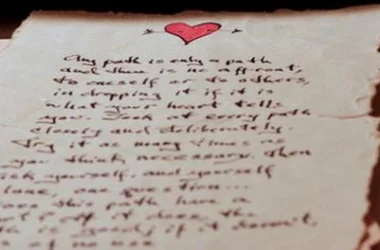 Any path is only a path
and there is no affront,
to oneself or to others,
in dropping it if it is
what your heart tells
you. Look at every path
closely and deliberately.
Try it as many times as
you think necessary. Then
ask yourself, and yourself
alone, one question...
does this path have a
heart? If it does, the
path is good; if it doesn't,
of no use